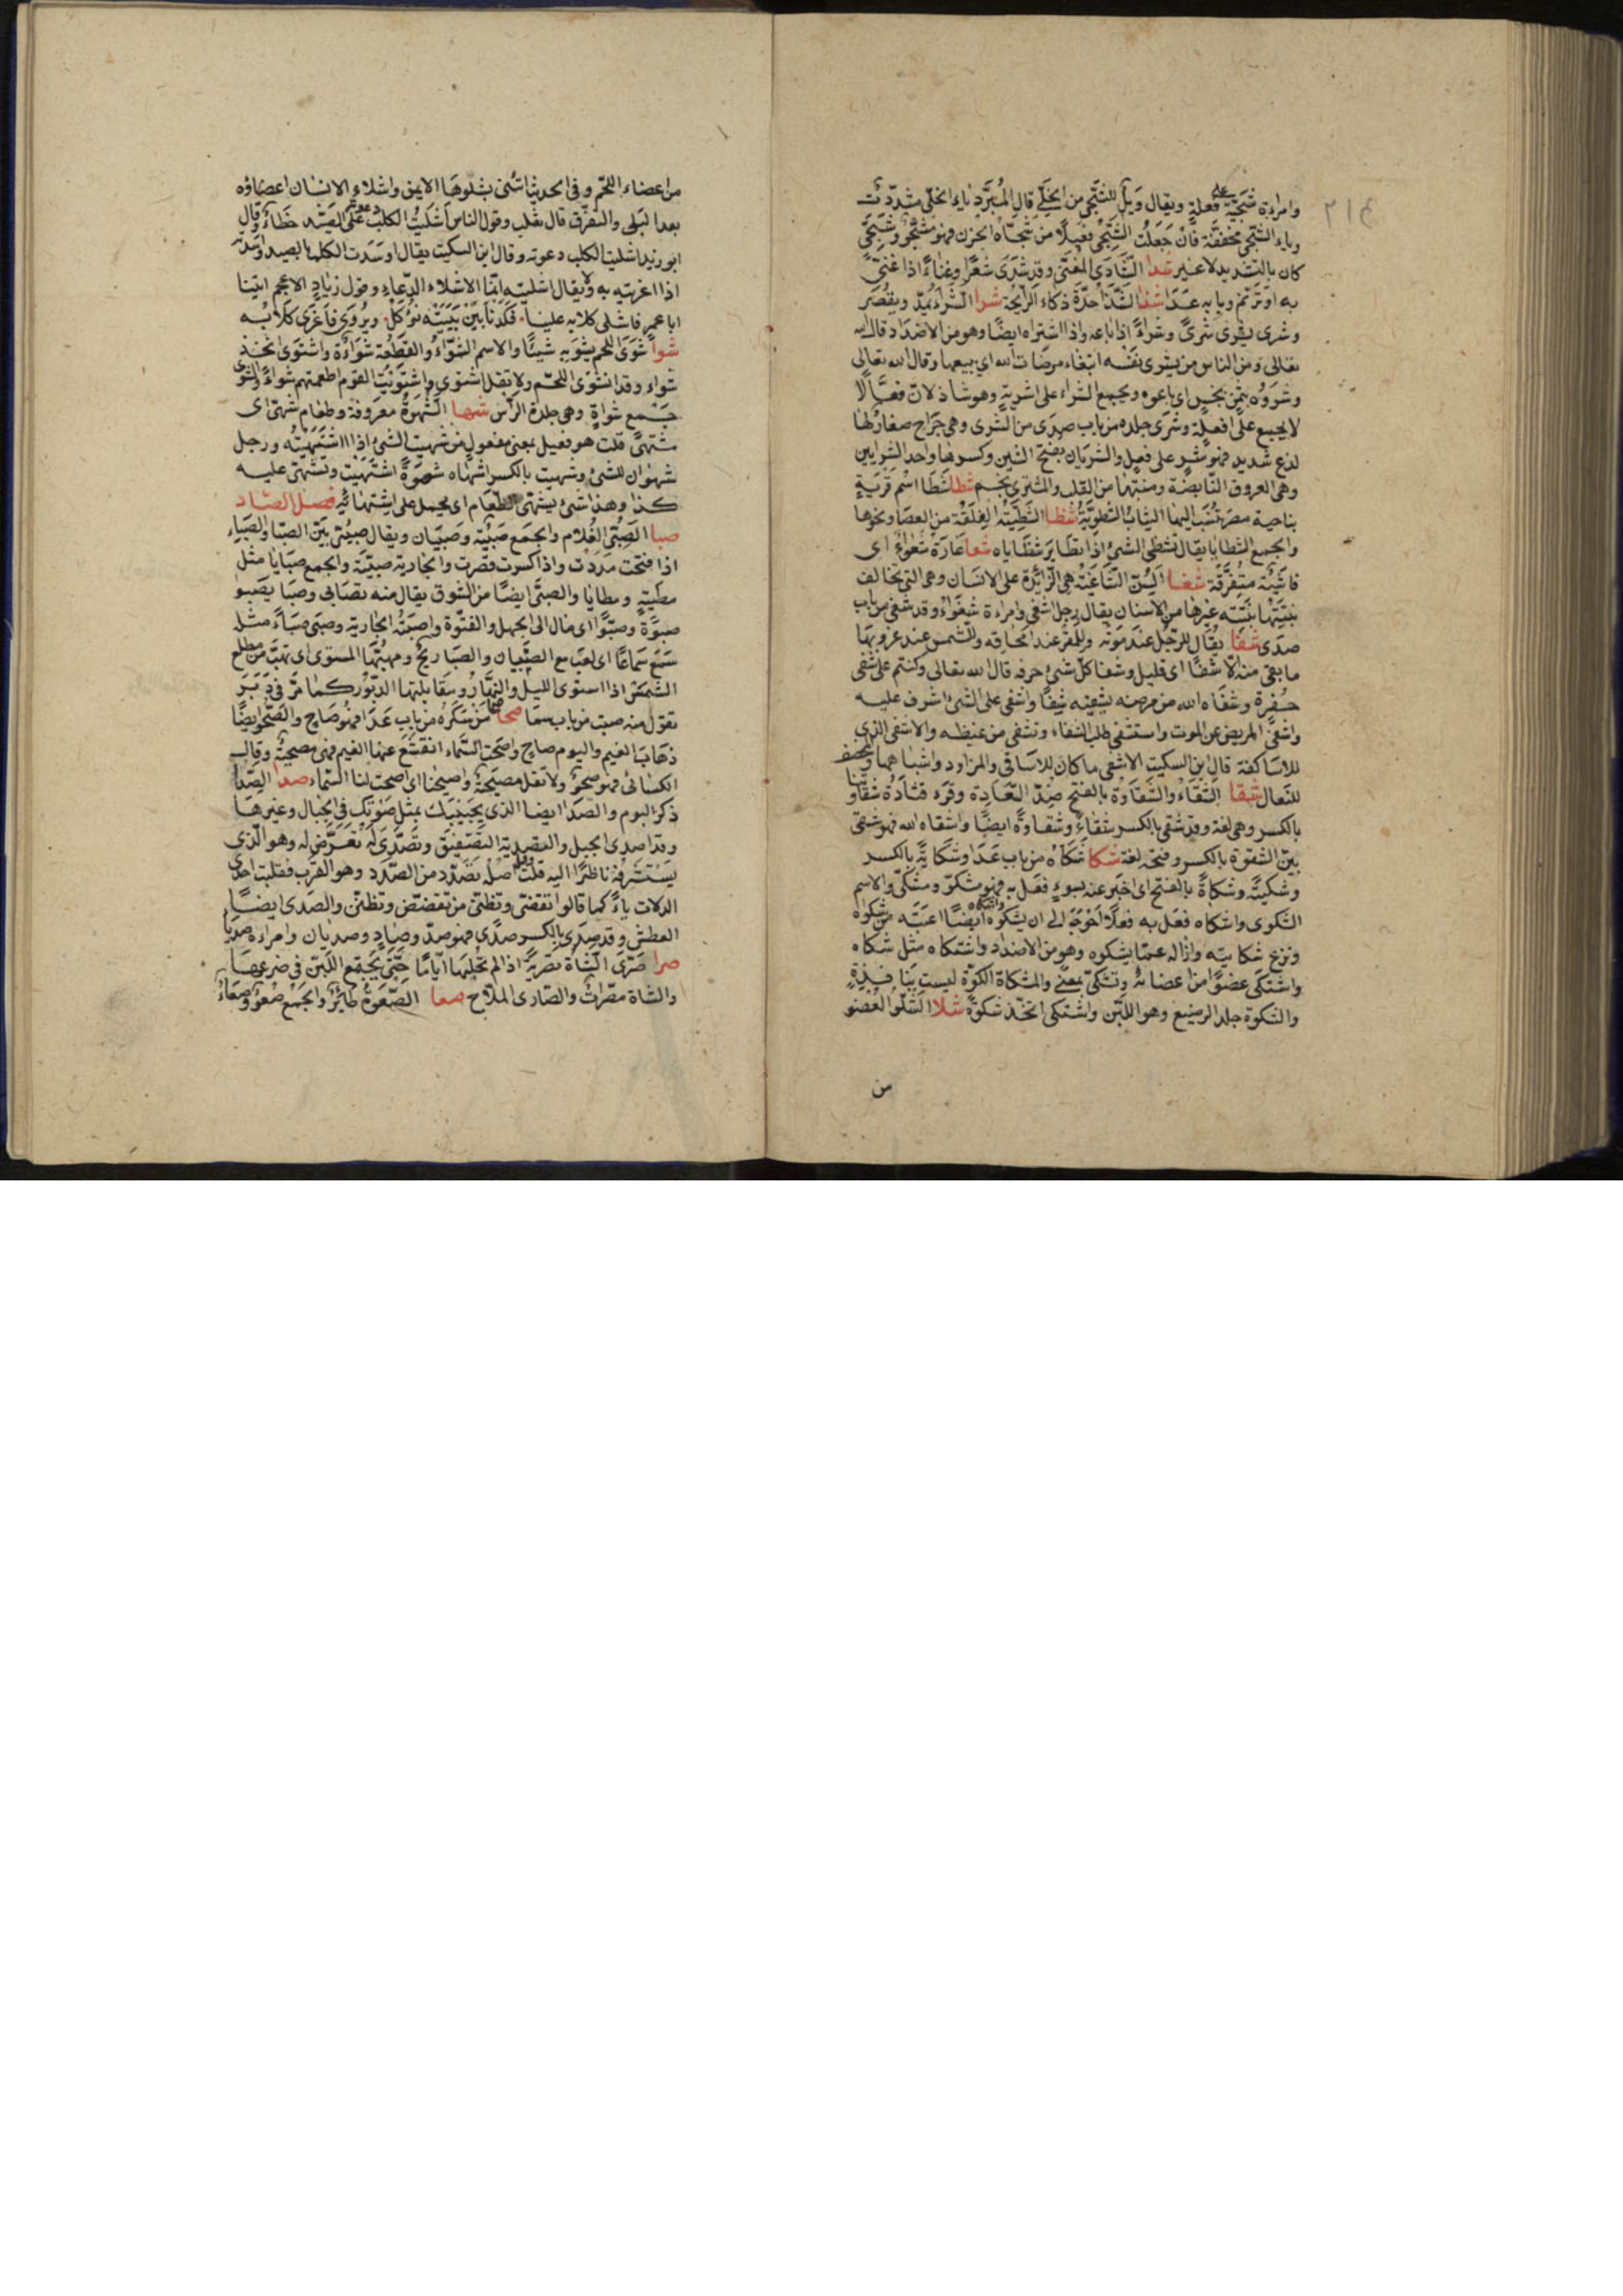 ٢١٤
وامراءة شجية على فعلة ويقال ويل للشجى من الخلى قال المبرد ياء الخلى مشددت
وياء الشجى مخففة فان جعلت الشجى فعيلا من شجاه الحزن فهو مشجو وشجى
كان بالتشديد لا غير شدا الشادى المغنى وقد شدى شعرا وغناء اذا غنى
به او ترنم وبابه عدا شذا الشذا حدة ذكاء الرايحة شرا الشراء يمد ويقصر
وشرى يشرى شرى وشراء اذا باعه واذا اشتراه ايضا وهو من الاضداد قال الله
تعالى ومن الناس من يشرى نفسه ابتغاء مرضات الله اى يبيعها وقال الله تعالى
وشروه بثمن بخس اى باعوه ويجمع الشراء على اشرية وهو شاذ لان فعالا
لا يجمع على افعلة وشرى جلده من باب صدى من الشرى وهى خراج صغار لها
لذع شديد فهو شر على فعل والشريان بفتح الشين وكسرها واحد الشرايين
وهى العروق النابضة ومنتها من القلب والمشترى نجم شطا شطا اسم قرية
بناحية مصر تنسب اليها الثياب الشطوية شظا الشظية الفلقة من العصا ونحوها
والجمع الشظايا يقال تشظى الشئ اذا تطاير شظاياه شعا غارة شعواء اى
فاشية متفرقة شغا السن الشاغية هى الزائدة على الاسنان وهى التى تخالف
نبتتها نبتة غيرها من الاسنان يقال رجل اشغى وامراءة شغواء وقد شغى من باب
صدى شفا يقال للرجل عند موته وللقمر عند امحاقه وللشمس عند غروبها
ما بقى منه الا شفا اى قليل وشفا كل شئ حرفه قال الله تعالى وكنتم على شفى
حفرة وشفاه الله من مرضه يشفيه شفا واشفى على الشئ اشرف عليه
واشفى المريض عن الموت واستشفى طلب الشفاء وتشفى من غيظه والاشفى الذى
للاساكفة قال ابن السكيت الاشفى ما كان للاساقى والمزاود واشباهها والمخصف
للنعال شقا الشقاء والشقاوة بالفتح ضد السعادة وقرء قتادة شقاوتنا
بالكسر وهى لغة وقد شقى بالكسر شقاء وشقاوة ايضا واشقاه الله فهو شقى
بين الشقوة بالكسر وفتحه لغة شكا شكاه من باب عدا وشكاية بالكسر
وشكية وشكاة بالفتح اى اخبر عنه بسوء فعل به فهو مشكو ومشكى والاسم
الشكوى واشكاه فعل به فعلا احوجه الى ان يشكوه واشكاه ايضا اعتبه من شكواه
ونزع شكايته وازاله عما يشكوه وهو من الاضداد واشتكاه مثل شكاه
واشتكى عضوا من اعضائه وتشكى بمعنى والمشكاة الكوة ليست بنافذة
والشكوة جلد الرضيع وهو اللبن واشتكى اتخذ شكوة شلا الشلو العضو
من
من اعضاء اللحم وفى الحديث ائتنى بشلوها الايمن واشلاء الانسان اعضاؤه
بعد البلى والتفرق قال ثعلب وقول الناس اشليت الكلب على الصيد خطاء وقال
ابو زيد اشليت الكلب دعوته وقال ابن السكيت يقال اوسدت الكلب بالصيد واسدته
اذا اغريته به ولا يقال اشليته انما الاشلاء الدعاء وقول زياد الاعجم اتينا
ابا عمرو فاشلى كلابه علينا فكدنا بين بيتيه نؤكل ويروى فاغرى كلابه
شوا شوى اللحم يشويه شيئا والاسم الشواء والقطعة شواءة واشتوى اتخذ
شواء وقد انشوى اللحم ولا تقل اشتوى واشتويت القوم اطعمتهم شواء والشوى
جمع شواة وهى جلدة الراس شها الشهوة معروفة وطعام شهى اى
مشتهى قلت هو فعيل بمعنى مفعول من شهيت الشئ اذا اشتهيته ورجل
شهوان للشئ وشهيت بالكسر اشهاه شهوة اشتهيت وتشهى عليه
كذا وهذا شئ يشهى الطعام اى يحمل على اشتهائه فصل الصاد
صبا الصبى الغلام والجمع صبية وصبيان ويقال صبى بين الصبا والصباء
اذا فتحت مددت واذا كسرت قصرت والجارية صبية والجمع صبايا مثل
مطية ومطايا والصبى ايضا من الشوق يقال منه تصابى وصبا يصبو
صبوة وصبوا اى مال الى الجهل والفتوة واصبته الجارية وصبى صباء مثل
سمع سماعا اى لعب مع الصبيان والصبا ريح ومهبها المستوى اى تهب من مطلع
الشمس اذا استوى الليل والنهار ومقابلتها الدبور كما مر فى دبر
تقول منه صبت من باب سما صحا صحا من سكره من باب عدا فهو صاح والصحو ايضا
ذهاب الغيم واليوم صاح واصحت السماء انقشع عنها الغيم فهى مصحية وقال
الكسائى فهو صحو ولا تقل مصيحة واصيحنا اى اصحت لنا السماء صدا الصدا
ذكر البوم والصدا ايضا الذى يجيبك بمثل صوتك فى الجبال وغيرها
وقد اصدى الجبل والتصدية التصفيق وتصدى له تعرض له وهو الذى
يستشرفه ناظرا اليه قلت وقيل اصله تصدد من الصدد وهو القرب فقلبت احدى
الدلات ياء كما قالوا تقضى وتظنى من تقضض وتظنن والصدى ايضا
العطش وقد صدى بالكسر صدى فهو صد وصاد وصديان وامراءة صديا
صرا صرى الشاة تصرية اذا لم يحلبها اياما حتى يجتمع اللبن فى ضرعها
والشاة مصراة والصارى الملاح صعا الصعوة طائر والجمع صعو وصعاء